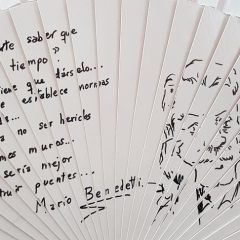 saber que
tiempo?
que dárselo...
establece normas
no ser heridos
muros...
sería mejor
puentes...
Mario Benedetti.-